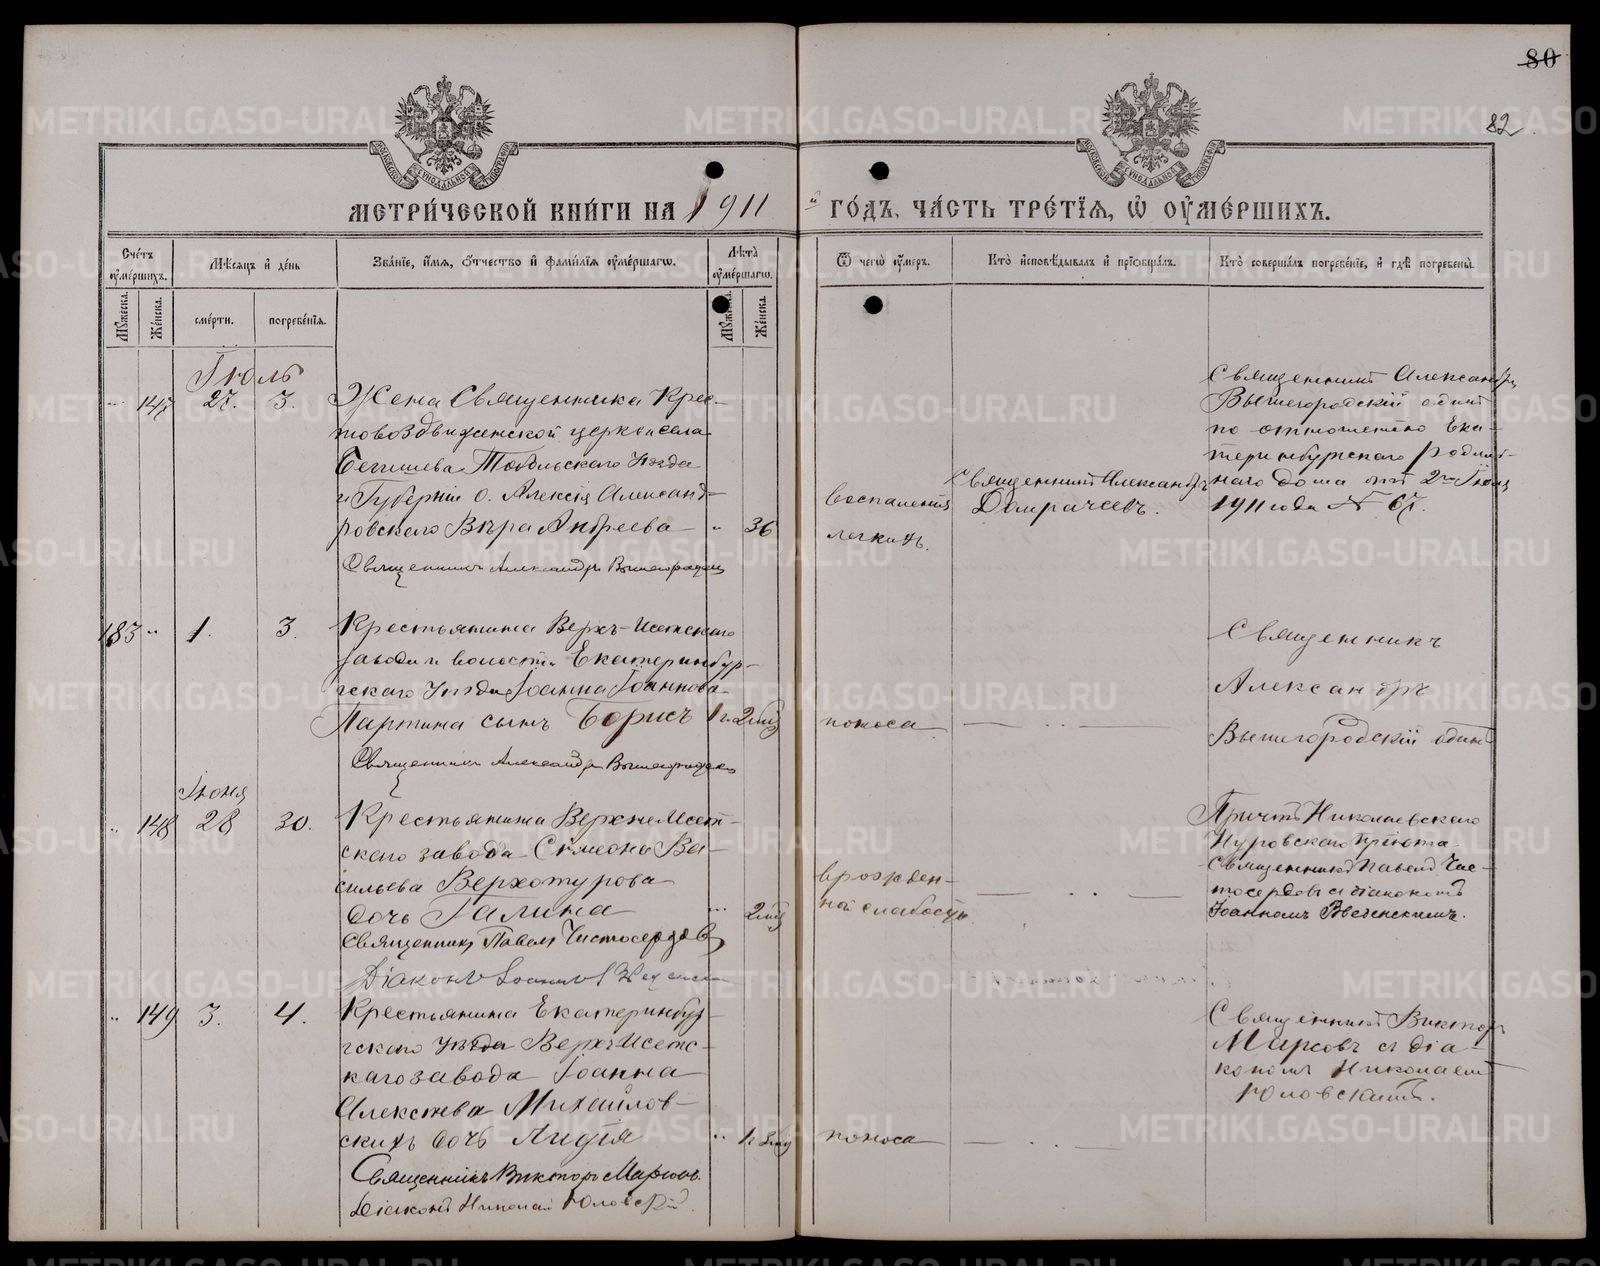 80
82
МЕТРИ́ЧЕСКОЙ КНИ́ГИ НА 1911
й ГО́ДЪ, ЧА́СТЬ ТРЕ́ТІѦ, Ѡ ОУ҆МЕ́РШИХЪ.
Сче́тъ оу҆ме́ршихъ.
Мѣ́сяцъ и҆ де́нь
Зва́нїе, и҆́мя, ѻ҆́тчество и҆ фами́лїя оу҆ме́ршагѡ.
Лѣ́та оу҆ме́ршагѡ.
Ѿ чегѡ̀ оу҆́меръ.
Кто̀ и҆сповѣ́дывалъ и҆ прїѡбща́лъ.
Кто̀ соверша́лъ погребе́нїе, и҆ гдѣ̀ погребены̀.
Мꙋ́жеска.
Же́нска.
сме́рти.
погребе́нїя.
Мꙋ́жеска.
Же́нска.
Іюль
147
27.
3.
Жена Священника Крес-
товоздвиженской церкви села
Бегишева Тобольскаго Уѣзда
и Губерніи о. Алексія Александ-
ровскаго Вѣра Андреева
"
36
Священникъ Александръ Вышегородскій
воспаленія
легкихъ.
Священникъ Александръ
Домрачеевъ.
Священникъ Александръ
Вышегородскій одинъ
по отношенію Ека-
теринбургскаго Родиль-
наго дома отъ 2го Іюля
1911 года № 67.
183
"
1.
3.
Крестьянина Верхъ-Исетскаго
завода и волости Екатеринбур-
гскаго Уѣзда Іоанна Іоаннова
Партина сынъ Борисъ
1 г. 2 мѣс
Священникъ Александръ Вышегородскій
поноса
Священникъ
Александръ
Вышегородскій одинъ
Іюня
"
148
28
30.
Крестьянина Верхне Исет-
скаго завода Сѵмеона Ва-
сильева Верхотурова
дочь Галина
2 мѣс
Священникъ Павелъ Чистосердовъ
Діаконъ Іоаннъ Введенскій
врожден-
ной слабости
Причтъ Николаевскаго
Нуровскаго Пріюта
Священникъ Павелъ Чис-
тосердовъ съ діакономъ
Іоанномъ Введенскимъ.
"
149
3.
4.
Крестьянина Екатеринбур-
гскаго Уѣзда Верхъ Исетс-
каго завода Іоанна
Алексѣева Михайлов-
скихъ дочь Лидія
"
1 г. 3 мѣс
Священникъ Викторъ Мирсовъ.
Діаконъ Николай Юловскій.
поноса
Священникъ Викторъ
Мирсовъ съ діа-
кономъ Николаемъ
Юловскимъ.